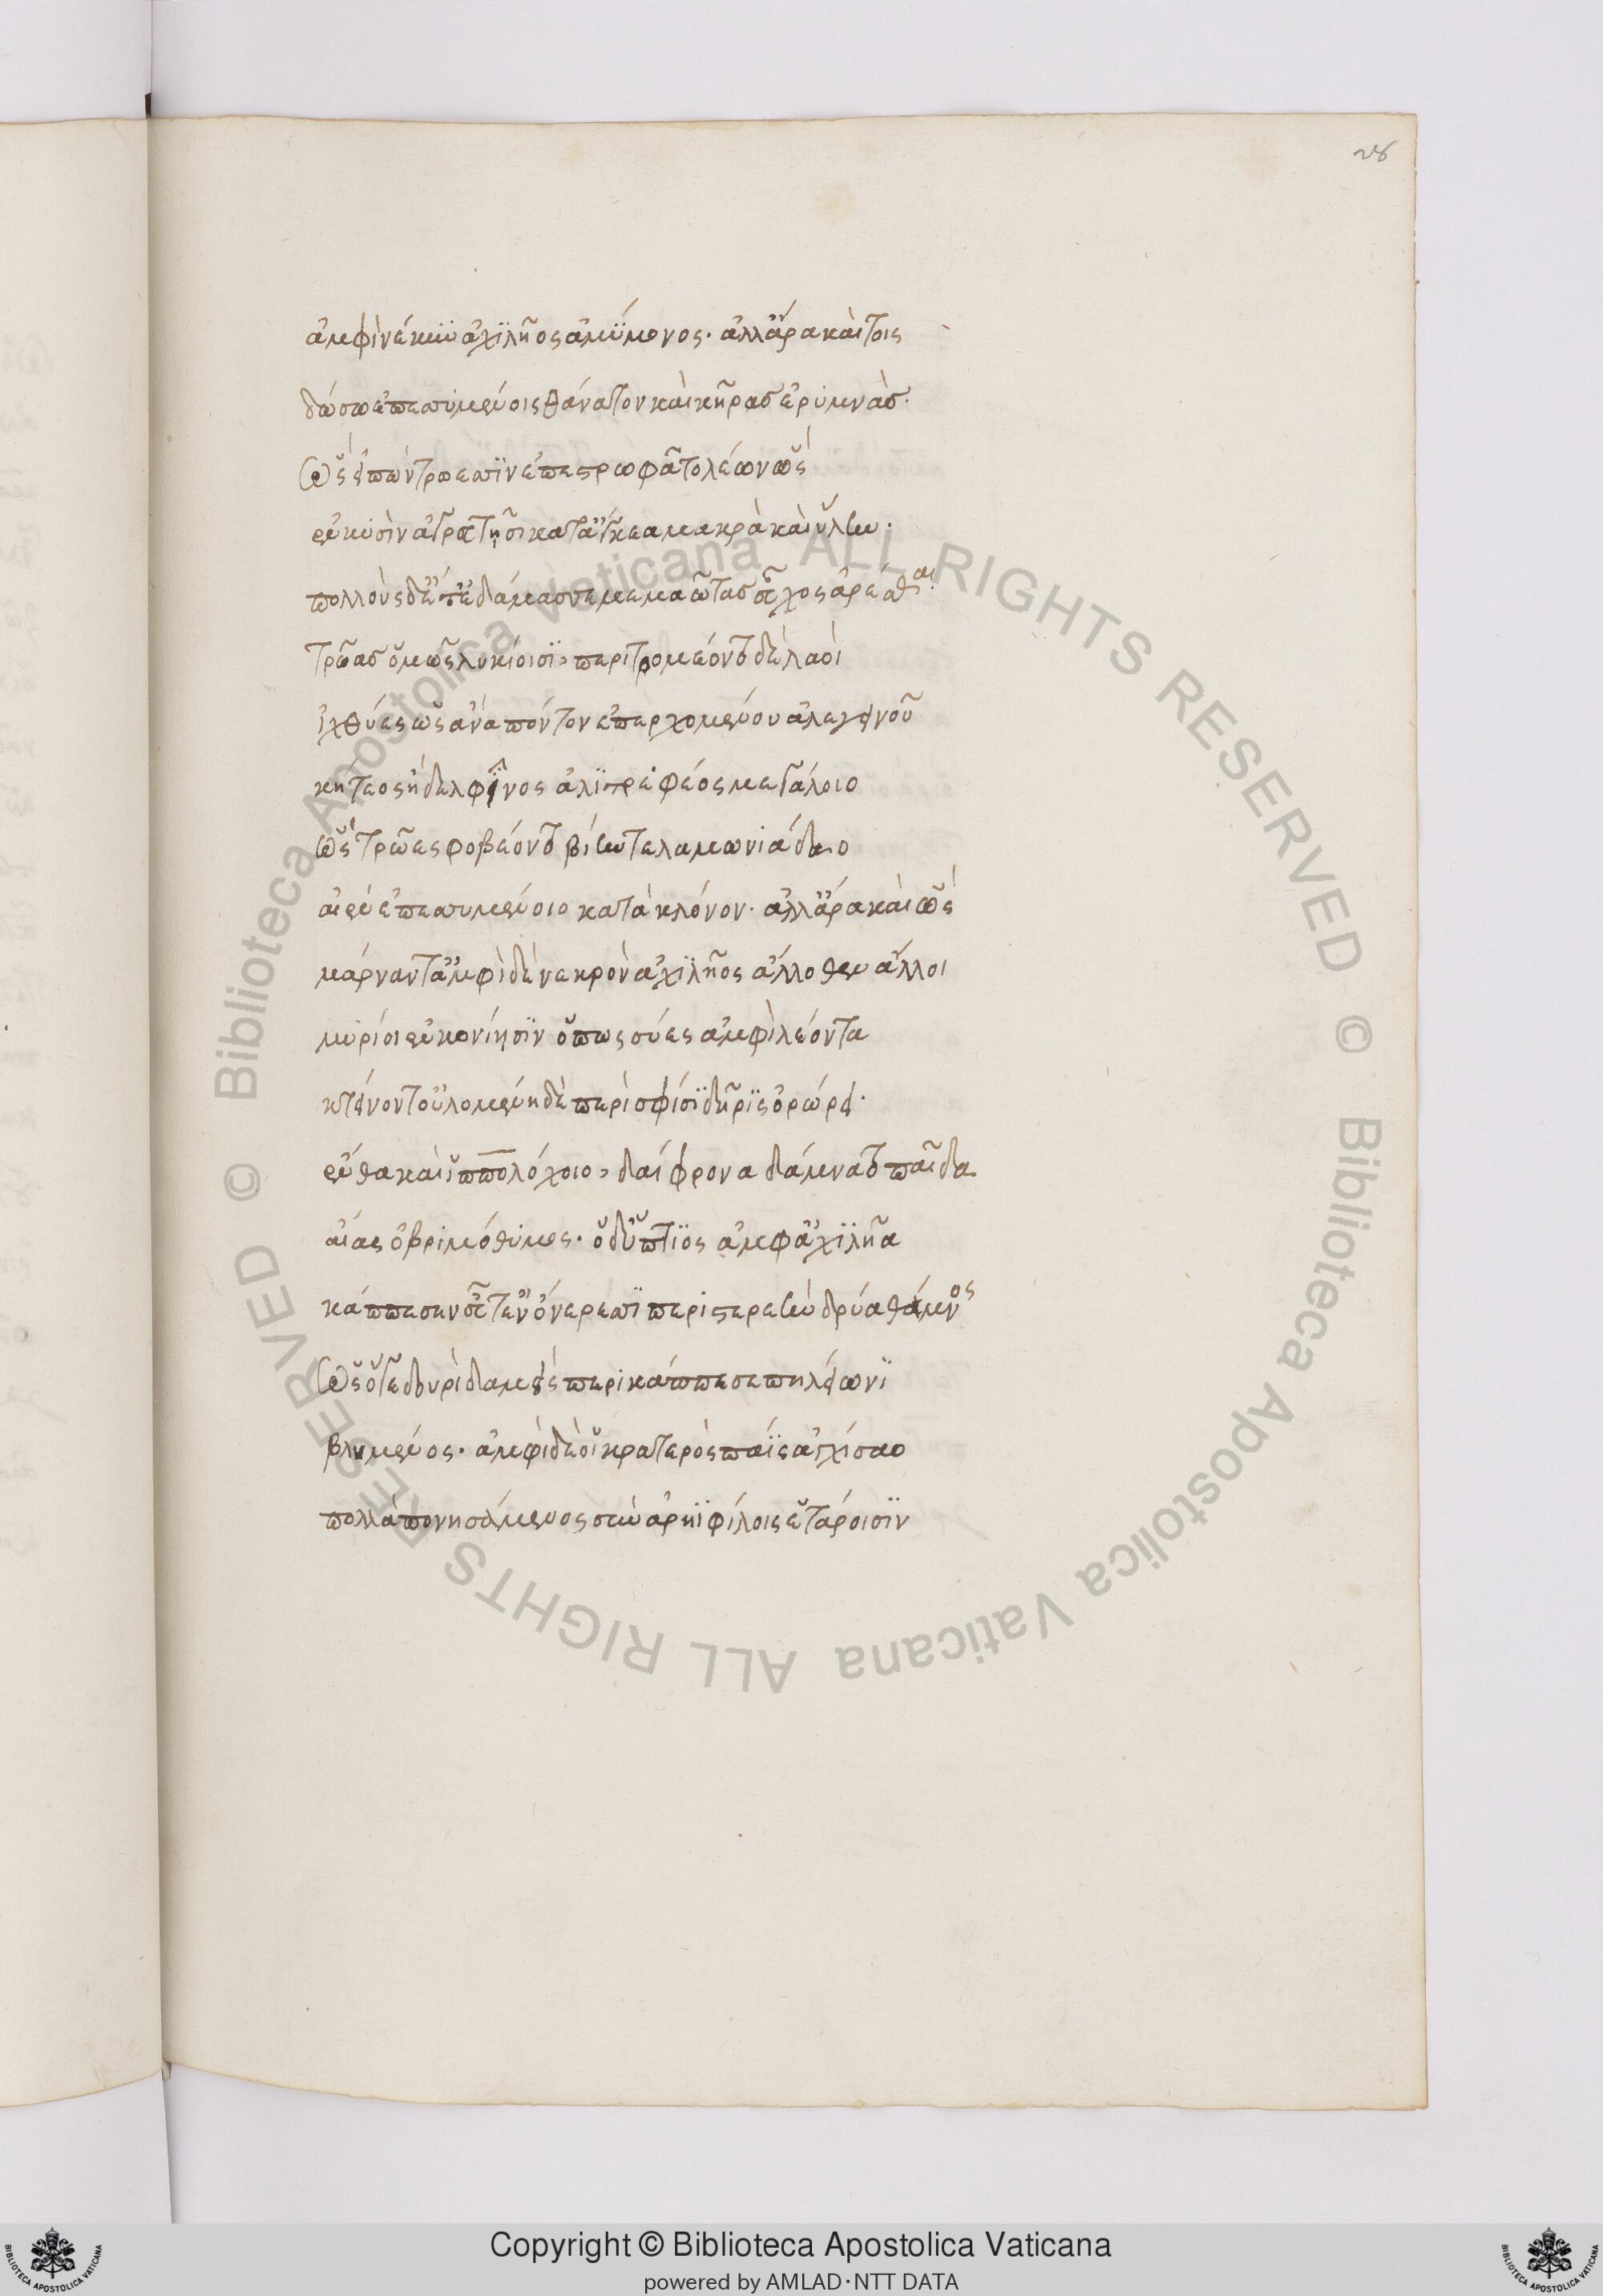 28
ἀμφὶ νέκυϊ ἀχιλῆος ἀμύμονος· ἀλλ' ἄρα καὶ τοῖς
δώσω ἐπεσσυμένοις θάνατον καὶ κῆρας ἐρυμνάς·
ὣς εἰπὼν τρώεσσιν ἐπεστρωφᾶτο λέων ὣς
ἐν κυσὶν ἀγρότῃσι κατ' ἄγκεα μακρὰ καὶ ὕλην·
πολλοὺς δ' ἐδάμασσε μεμαῶτας εὖχος ἀρέσθαι
τρῶας ὁμῶς λυκίοισι, περιτρομέοντο δὲ λαοὶ
ἰχθύες ὣς ἀνὰ πόντον ἐπερχομένου ἀλεγεινοῦ
κήτεος ἢ δελφῖνος ἁλιτρεφέος μεγάλοιο
ὣς τρῶες φοβέοντο βίην τελαμωνιάδαο
αἰὲν ἐπεσσυμένοιο κατὰ κλόνον· ἀλλ' ἄρα καὶ ὣς
μάρναντ' ἀμφὶ δὲ νεκρὸν ἀχιλῆος ἄλλοθεν ἄλλοι
μυρίοι ἐν κονίῃσιν ὅπως σύες ἀμφὶ λέοντα
κτείνοντ' οὐλομένη δὲ περὶ σφίσι δῆρις ὀρώρει·
ἔνθα καὶ ἱππολόχοιο, δαΐφρονα δάμνατο παῖδα
αἴας ὀβριμόθυμος· ὁ δ' ὕπτιος ἀμφ' ἀχιλῆα
κάππεσεν εὖτ' ἐν ὄνερεσσι περὶ στερεὴν δρύα θάμνος
ὣς ὅτε δουρὶ δαμεὶς περικάππεσε πηλείωνι
βλήμενος· ἀμφὶ δέ οἱ κρατερὸς πάϊς ἀγχίσαο
πολλὰ πονησάμενος σὺν ἀρηϊφίλοις ἑτάροισιν
Copyright © Biblioteca Apostolica Vaticana
powered by AMLAD·NTT DATA
© Biblioteca Apostolica Vaticana ALL RIGHTS RESERVED
© Biblioteca Apostolica Vaticana ALL RIGHTS RESERVED